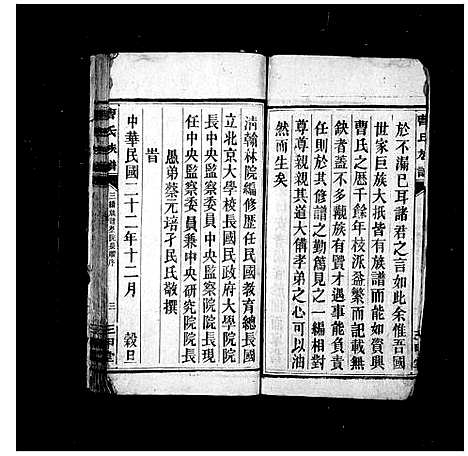 曹氏族譜
於不漏已耳諸君之言如此余惟吾國
世家巨族大抵皆有族譜而能如資興
曹氏之歷千餘年枝派益繁而記載無
缺者蓋不多觀族有賢才遇事能負責
任則於其修譜之勤萬見之一編相對
尊尊親親其道大備孝弟之心可以油
然而生矣
清翰林院編修歷任民國教育總長國
立北京大學校長國民政府大學院院
長中央監察委員中央監察院院長現
任中央監察委員兼中央研究院院長
愚弟蔡元培孑民氏敬撰
旹
中華民國二十二年十二月　穀旦
曹氏族譜
三